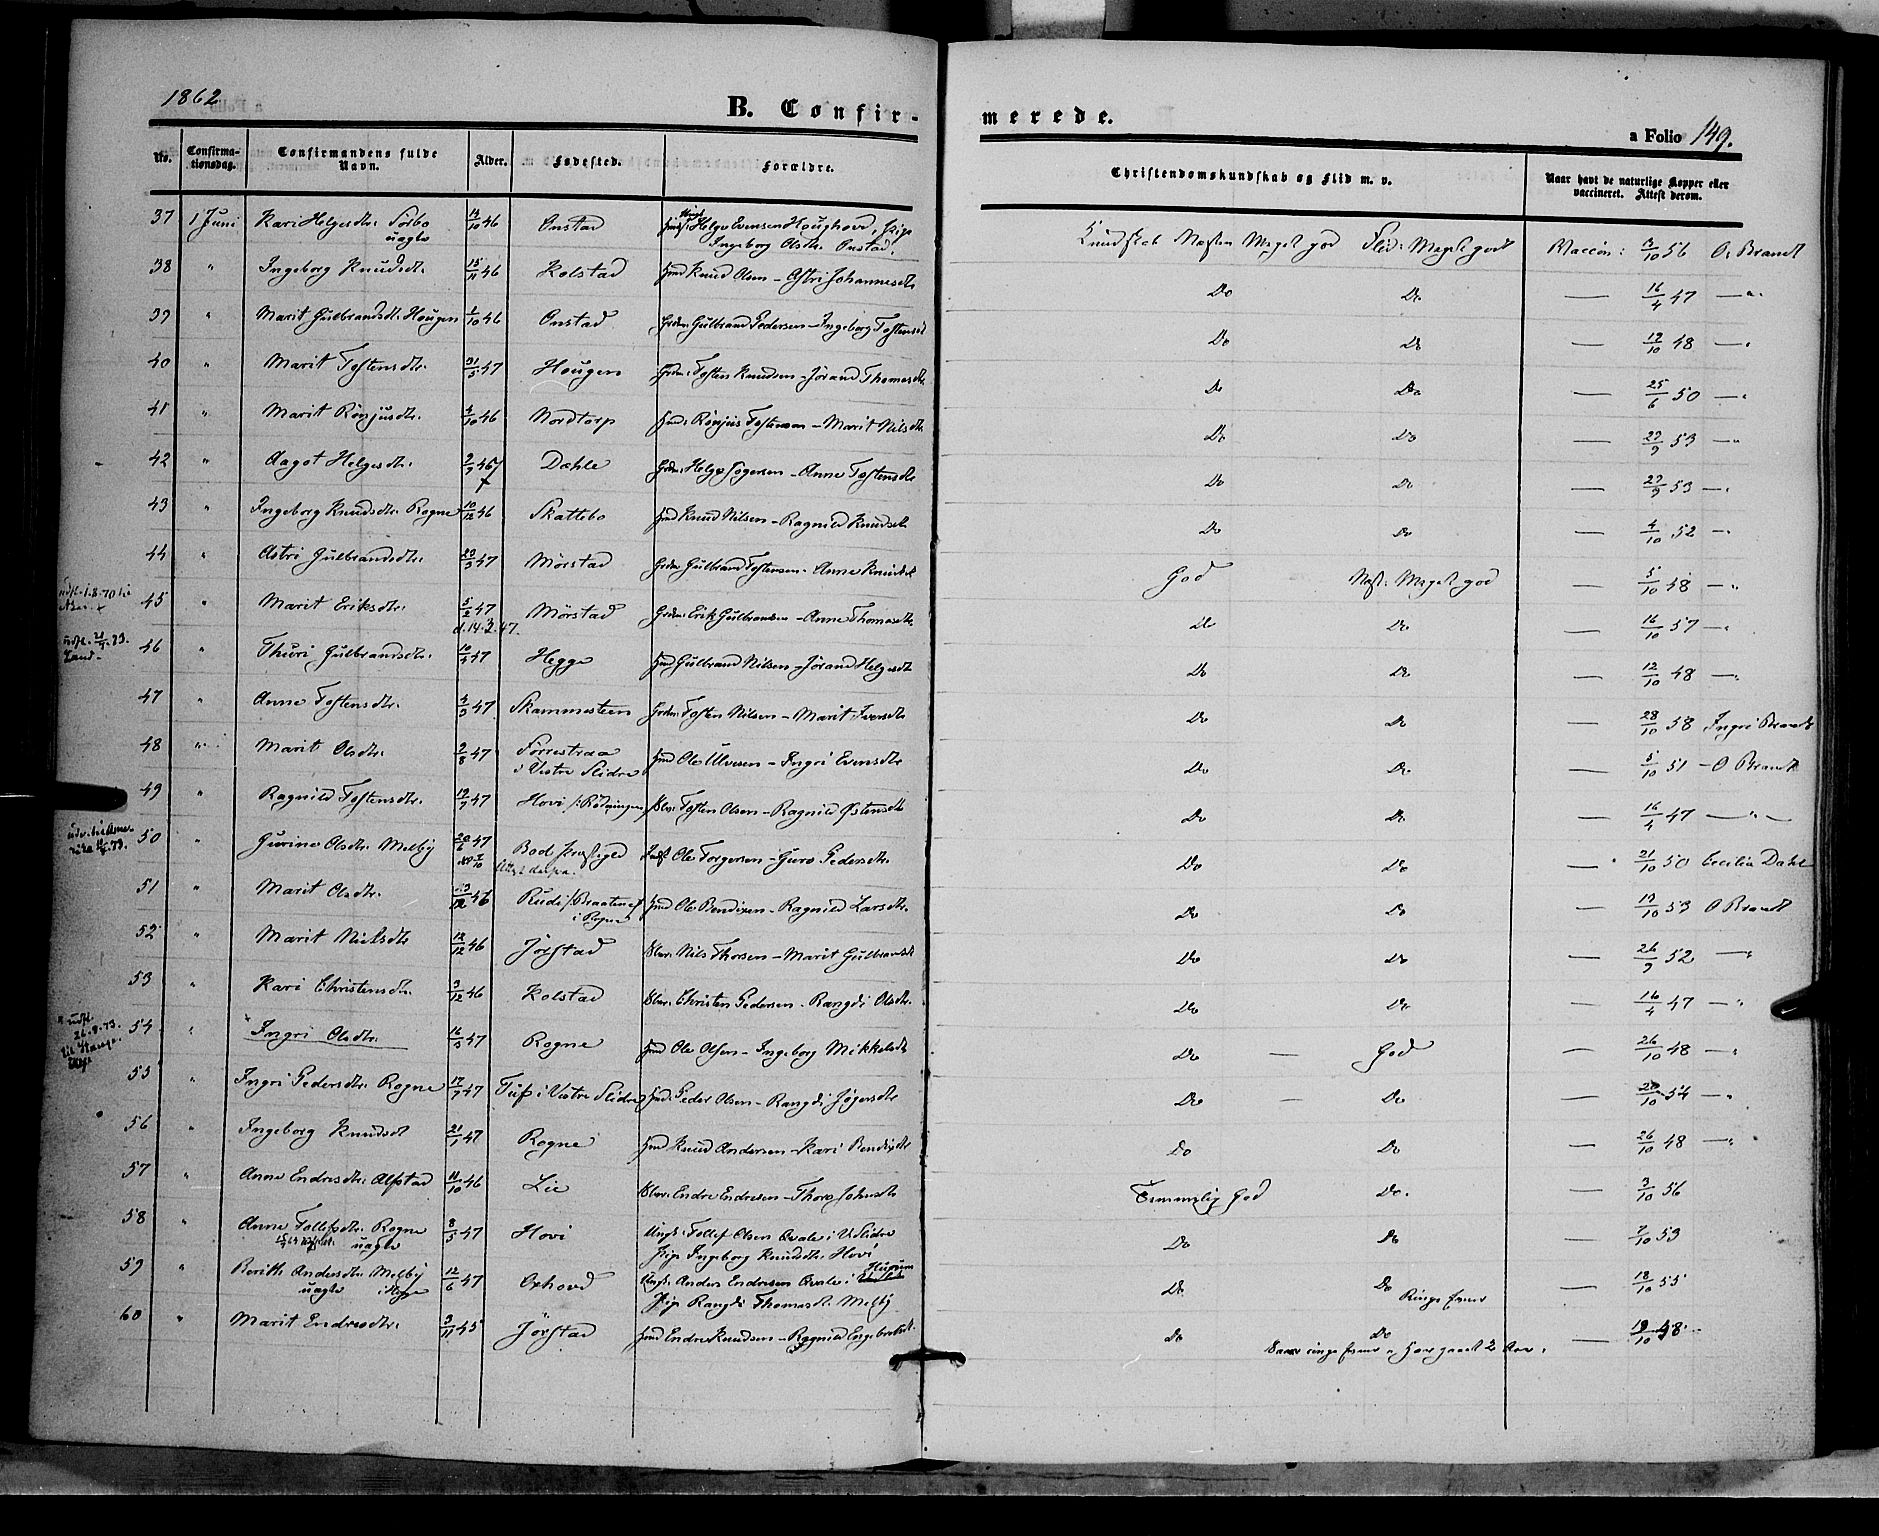 1862
B. Confirmerede.
a Folio 149.
No. Confirmationsdag. Confirmandens fulde Navn. Alder. Fødested. Forældre. Christendomskundskab og Flid m. v. Naar havt de naturlige Kopper eller vaccineret. Attest derom.
37 1 Juni Kari Helgesdtr. Sørbo 46 Onstad Helge Evensen Houghovd, Pige Kundskab Næsten Meget god Flid: Meget godt Vaccin: 56 O. Brandt
uagte Ingeborg Olsdtr. Onstad.
38 " Ingeborg Knudsdt. 46 Kolstad Hmd Knud Olsen - Astri Johannesdt Do Do — 16/4 47 — "
39 " Marit Gulbrandsdt. Hougen 46 Onstad Grdm. Gulbrand Pedersen - Ingeborg Tostensd Do Do — 12/10 48 — "
40 " Marit Tostensdtr. 31/5 47 Hougen Grdm. Tosten Knudsen - Jørand Thomasdt. Do Do — 25/6 50 — "
41 " Marit Rønjusdtr. 4/10 46 Nordtorp Hmd. Rønjus Tostensen - Marit Nilsdt. Do Do — 53 — "
42 " Aagot Helgesdtr. Dæhle Grdm. Helge - Anne Tostensdt Do Do — 53 — "
43 " Ingeborg Knudsdtr. Rogne 10/12 46 Skattebo Hmd Knud Nilsen - Ragnild Knudsdt Do Do — 4/10 52 — "
44 " Astri Gulbrandsdtr. 23/3 47 Mørstad Grdm Gulbrand Tostensen - Anne Knudsdt God Næst. Meget god — 5/10 48 — "
45 " Marit Eriksdtr. 5/2 47 Mørstad Grdm. Erik Gulbrandsen - Anne Thomasdt Do Do — 16/10 57 — "
d. 14.3.47.
46 " Thuri Gulbrandsdtr. 10/4 47 Hegge Hmd Gulbrand Nilsen - Jørand Helgesdt Do Do — 12/10 48 — "
47 " Anne Tostensdtr. 4/3 47 Skammesteen Grdm. Tosten Nilsen - Marit Iversdt Do Do — 28/10 58 Ingri Brandt
48 " Marit Olsdtr. 2/8 47 Førrestraa Hmd Ole Ulvesen - Ingri Evensdtr Do Do — 5/10 51 — O Brandt
i Vestre Slidre
49 " Ragnild Tostensdtr. 47 Hovi Tosten Olsen - Ragnild Østensdt Do Do — 16/4 47 — " —
50 " Gurine Olsdtr. Melby 20/6 47 Bod Præstegjeld Ole Torgersen - Guro Pedersdt. Do Do — 21/10 50 Cecilia Dahl
51 " Marit Olsdtr. 46 Rude /: Braaten Hmd Ole Bendixen - Ragnild Larsdtr. Do Do — 19/10 53 O Brandt
i Rogne
52 " Marit Nielsdtr 12/12 46 Jørstad Nils Thorsen - Marit Gulbrandsdt Do Do — 26/9 52 — "
53 " Kari Christensdtr. 3/12 46 Kolstad Christen Pedersen - Rangdi Olsdtr. Do Do — 16/4 47 — "
54 " Ingri Olsdtr. 16/3 47 Rogne Hmd Ole Olsen - Ingeborg Mikkelsdt Do — God — 26/10 48 — "
55 " Ingri Pedersdtr. Rogne 17/7 47 i Vestre Slidre Hmd. Peder Olsen - Rangdi Do — Do — 54 — "
56 " Ingeborg Knudsdt 21/1 47 Rogne Hmd Knud Andersen - Kari Bendixdt Do Do — 26/10 48 — "
57 " Anne Endresdtr. Alfstad 11/10 46 Lie Endre Endresen - Thora Johnsdt Temmelig God Do. — 3/10 56
58 " Anne Tollefsdtr. Rogne 8/5 47 Hovi Ungk. Tollef Olsen Qvale i V Slidre Do Do — 53
uagte Pige Ingeborg Knudsdtr. Hovi
59 " Berith Andersdtr. Melby 12/6 47 Oxhovd Ungk. Anders Endresen Qvale i Hurum Do Do — 18/10 55
uagte i Hegge Pige Rangdi Thomasdt. Melby Ringe Evner
60 " Marit Endresdtr. 3/11 45 Jørstad Hmd Endre Knudsen - Ragnild Engebretsdt. Do Do — 19/10 48
Saare ringe Evner, har gaaet 2 Aar.